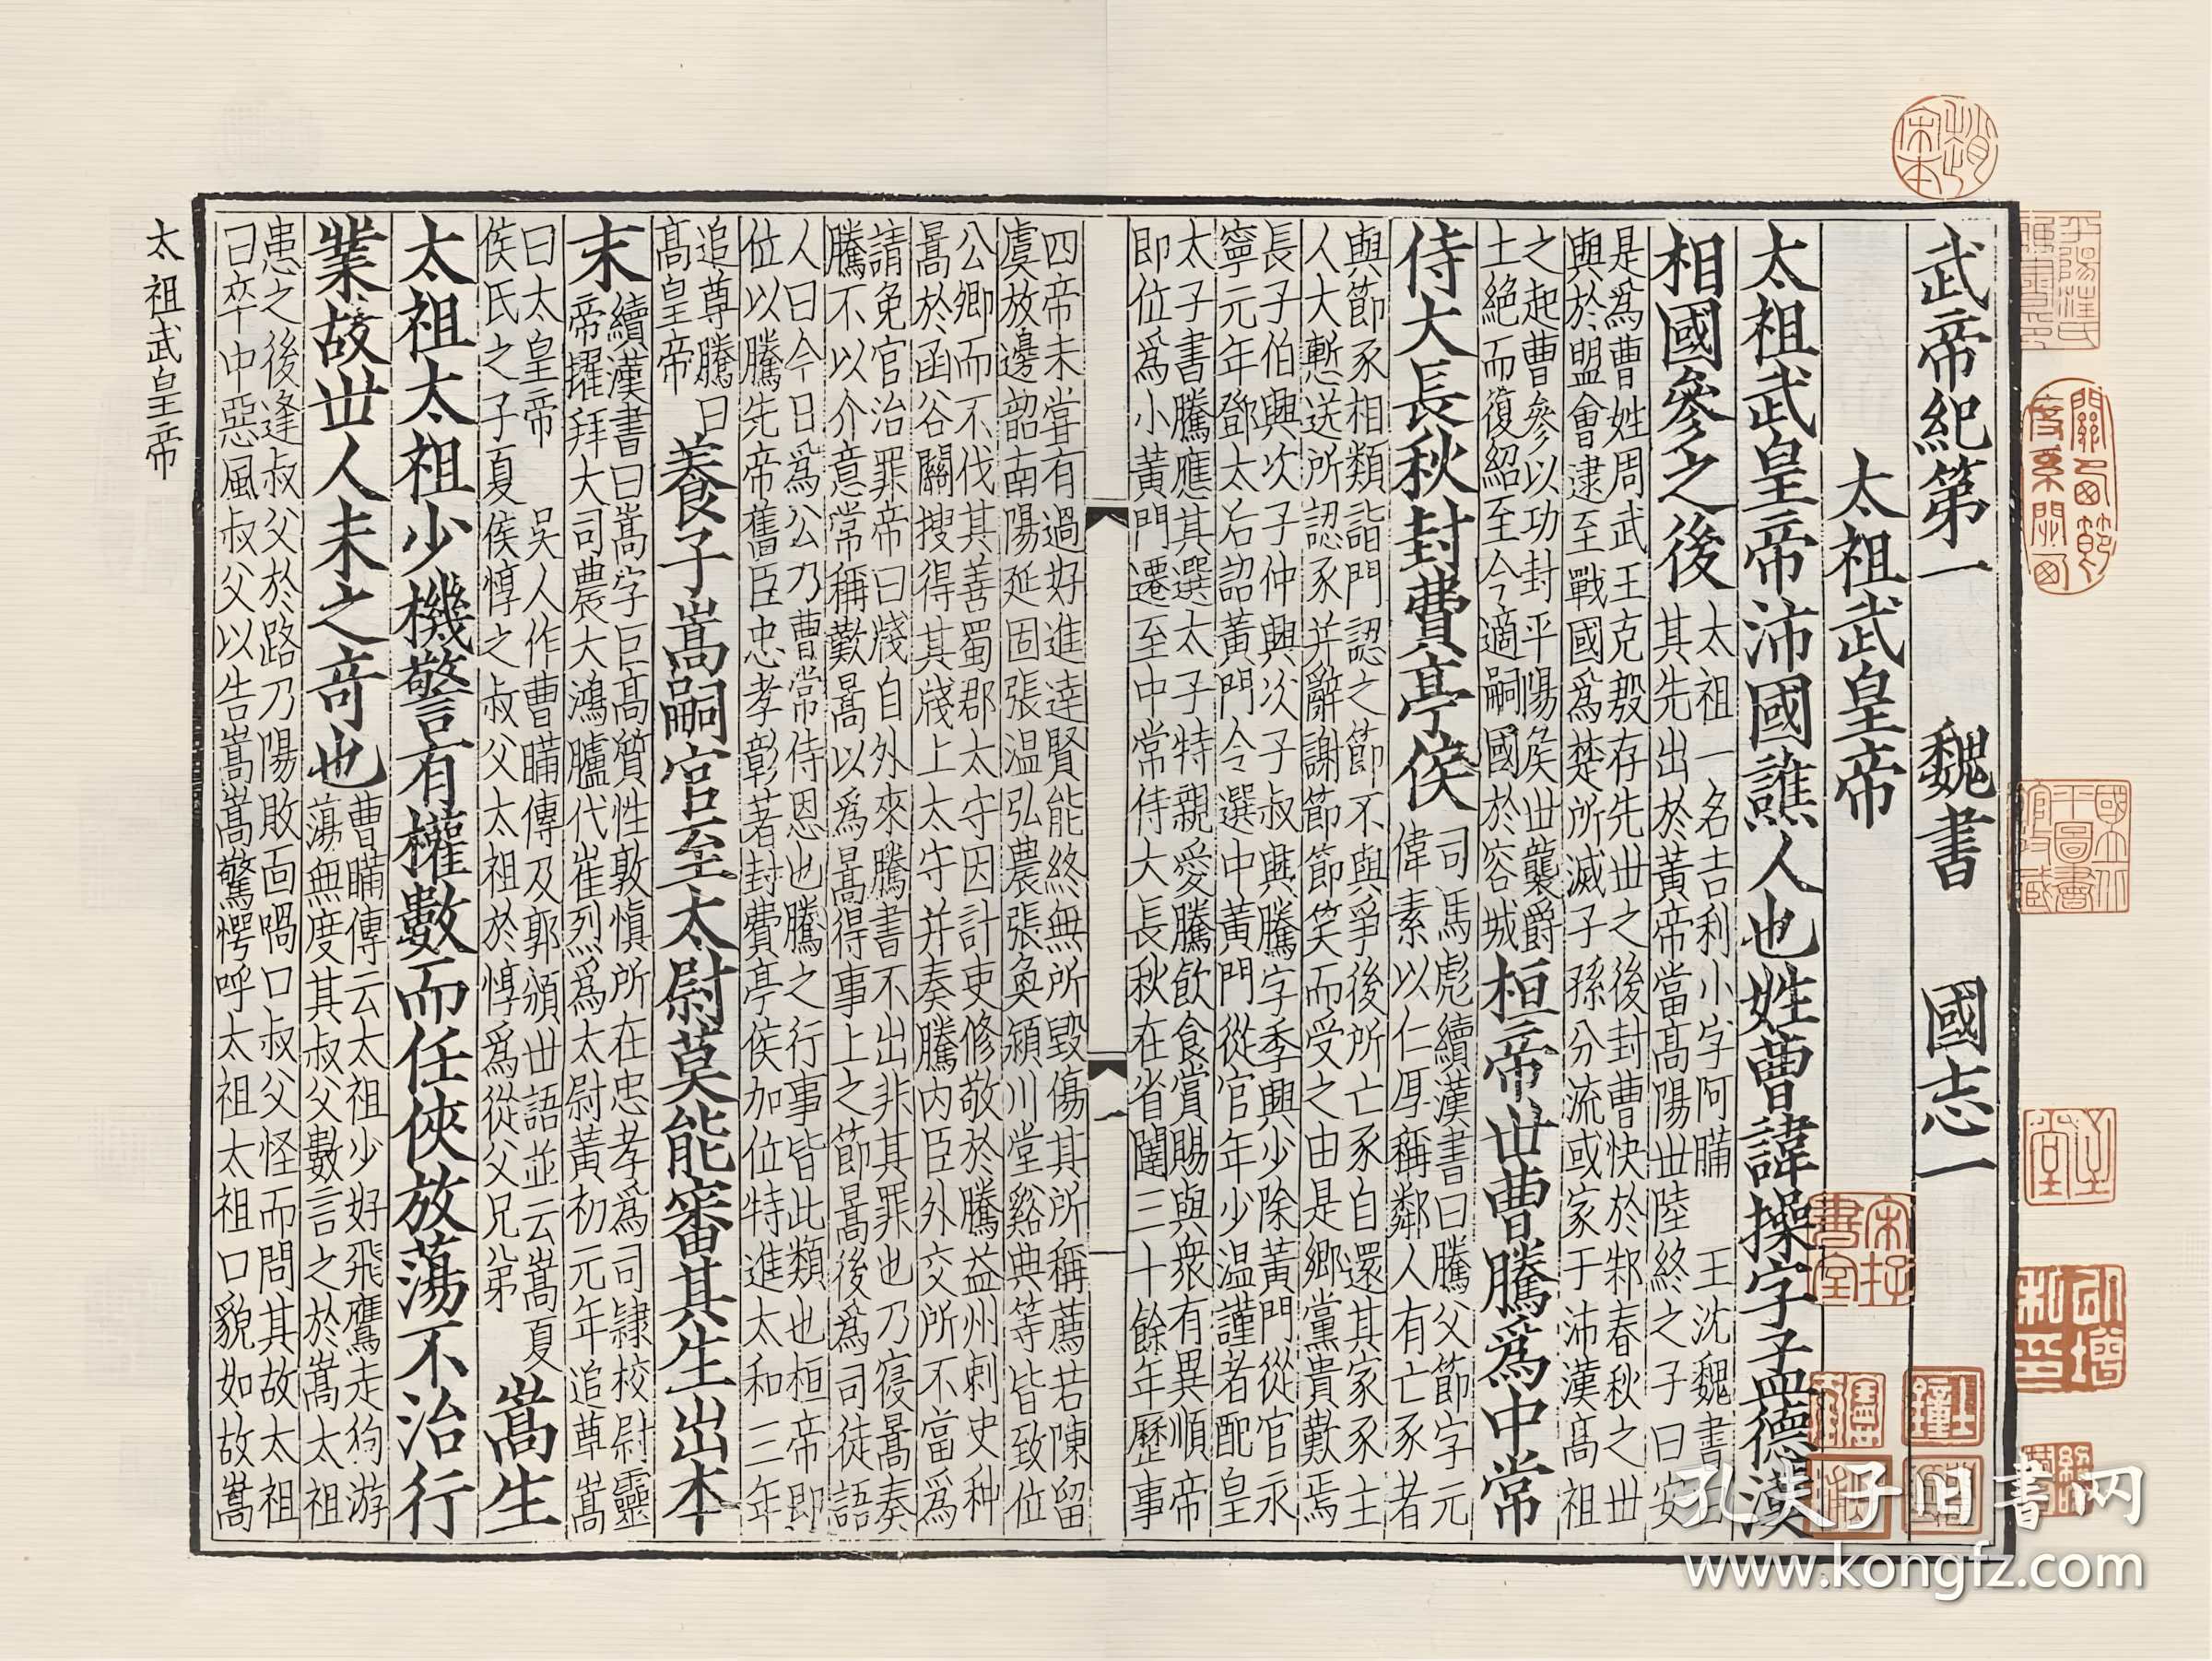 武帝紀第一 魏書 國志一
太祖武皇帝
太祖武皇帝沛國譙人也姓曹諱操字孟德漢
相國參之後
太祖一名吉利小字阿瞞 王沈魏書曰
其先出於黃帝當高陽世陸終之子曰安
是爲曹姓周武王克殷存先世之後封曹快於邾春秋之世
與於盟會逮至戰國爲楚所滅子孫分流或家于沛漢高祖
之起曹參以功封平陽侯世襲爵
土絕而復紹至今適嗣國於容城
桓帝世曹騰爲中常
侍大長秋封費亭侯
司馬彪續漢書曰騰父節字元
偉素以仁厚稱鄰人有亡豕者
與節豕相類詣門認之節不與爭後所亡豕自還其家豕主
人大慙送所認豕并辭謝節節笑而受之由是鄉黨貴歎焉
長子伯興次子仲興次子叔興騰字季興少除黃門從官永
寧元年鄧太后詔黃門令選中黃門從官年少温謹者配皇
太子書騰應其選太子特親愛騰飲食賞賜與衆有異順帝
即位爲小黃門遷至中常侍大長秋在省闥三十餘年歷事
一
四帝未嘗有過好進達賢能終無所毀傷其所稱薦若陳留
虞放邊韶南陽延固張温弘農張奐潁川堂谿典等皆致位
公卿而不伐其善蜀郡太守因計吏修敬於騰益州刺史种
暠於函谷關搜得其牋上太守并奏騰內臣外交所不當爲
請免官治罪帝曰牋自外來騰書不出非其罪也乃寑暠奏
騰不以介意常稱歎暠以爲暠得事上之節暠後爲司徒語
人曰今日爲公乃曹常侍恩也騰之行事皆此類也桓帝即
位以騰先帝舊臣忠孝彰著封費亭侯加位特進太和三年
追尊騰曰
高皇帝
養子嵩嗣官至太尉莫能審其生出本
末
續漢書曰嵩字巨高質性敦慎所在忠孝爲司隷校尉靈
帝擢拜大司農大鴻臚代崔烈爲太尉黃初元年追尊嵩
曰太皇帝 吳人作曹瞞傳及郭頒世語並云嵩夏
侯氏之子夏侯惇之叔父太祖於惇爲從父兄弟
嵩生
太祖太祖少機警有權數而任俠放蕩不治行
業故世人未之奇也
曹瞞傳云太祖少好飛鷹走狗游
蕩無度其叔父數言之於嵩太祖
患之後逢叔父於路乃陽敗面喎口叔父怪而問其故太祖
曰卒中惡風叔父以告嵩嵩驚愕呼太祖太祖口貌如故嵩
太祖武皇帝
孔夫子旧書网
www.kongfz.com